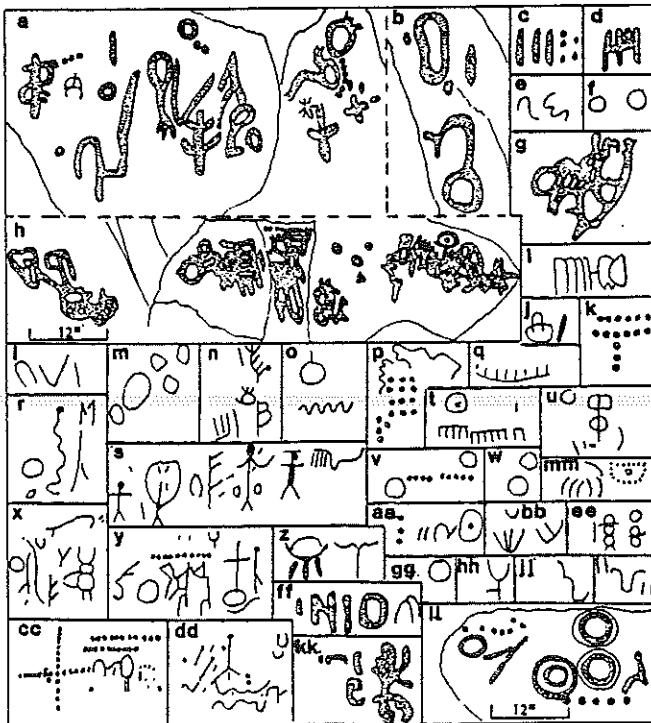 a b c d
e f
g
h i
12"
j k
l m n o p q
r t u
s
v w mm
x y z aa bb ee
gg hh jj ii
ff
cc dd kk ll
12"